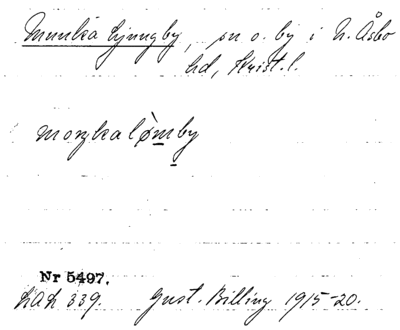 Munka Ljungby, sn o. by i N. Åsbo
hd, Krist. l.
moŋkaljòmby
Nr 5497.
LAL 339. Gust. Billing 1915-20.